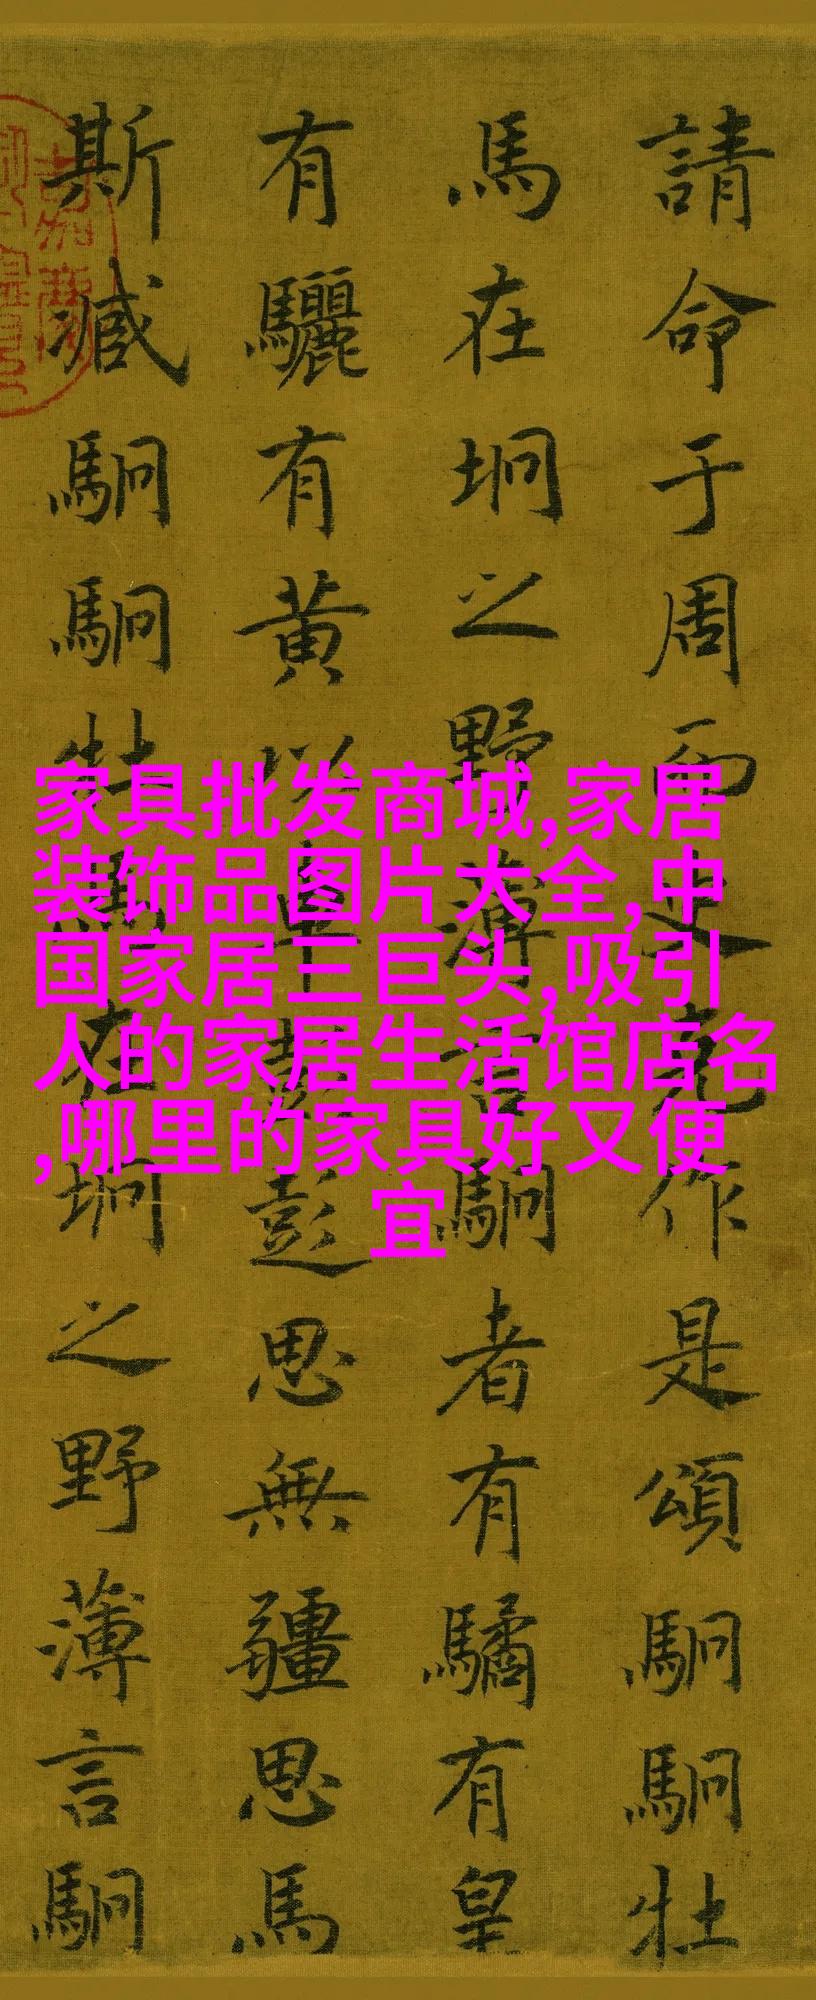 請命于周而史克作是頌駉駉牡
馬在坰之野薄言駉者有驈有皇
有驪有黃以車彭彭思無疆思馬
斯臧駉駉牡馬在坰之野薄言駉
家具批发商城,家居
装饰品图片大全,中
国家居三巨头,吸引
人的家居生活馆店名
,哪里的家具好又便
宜